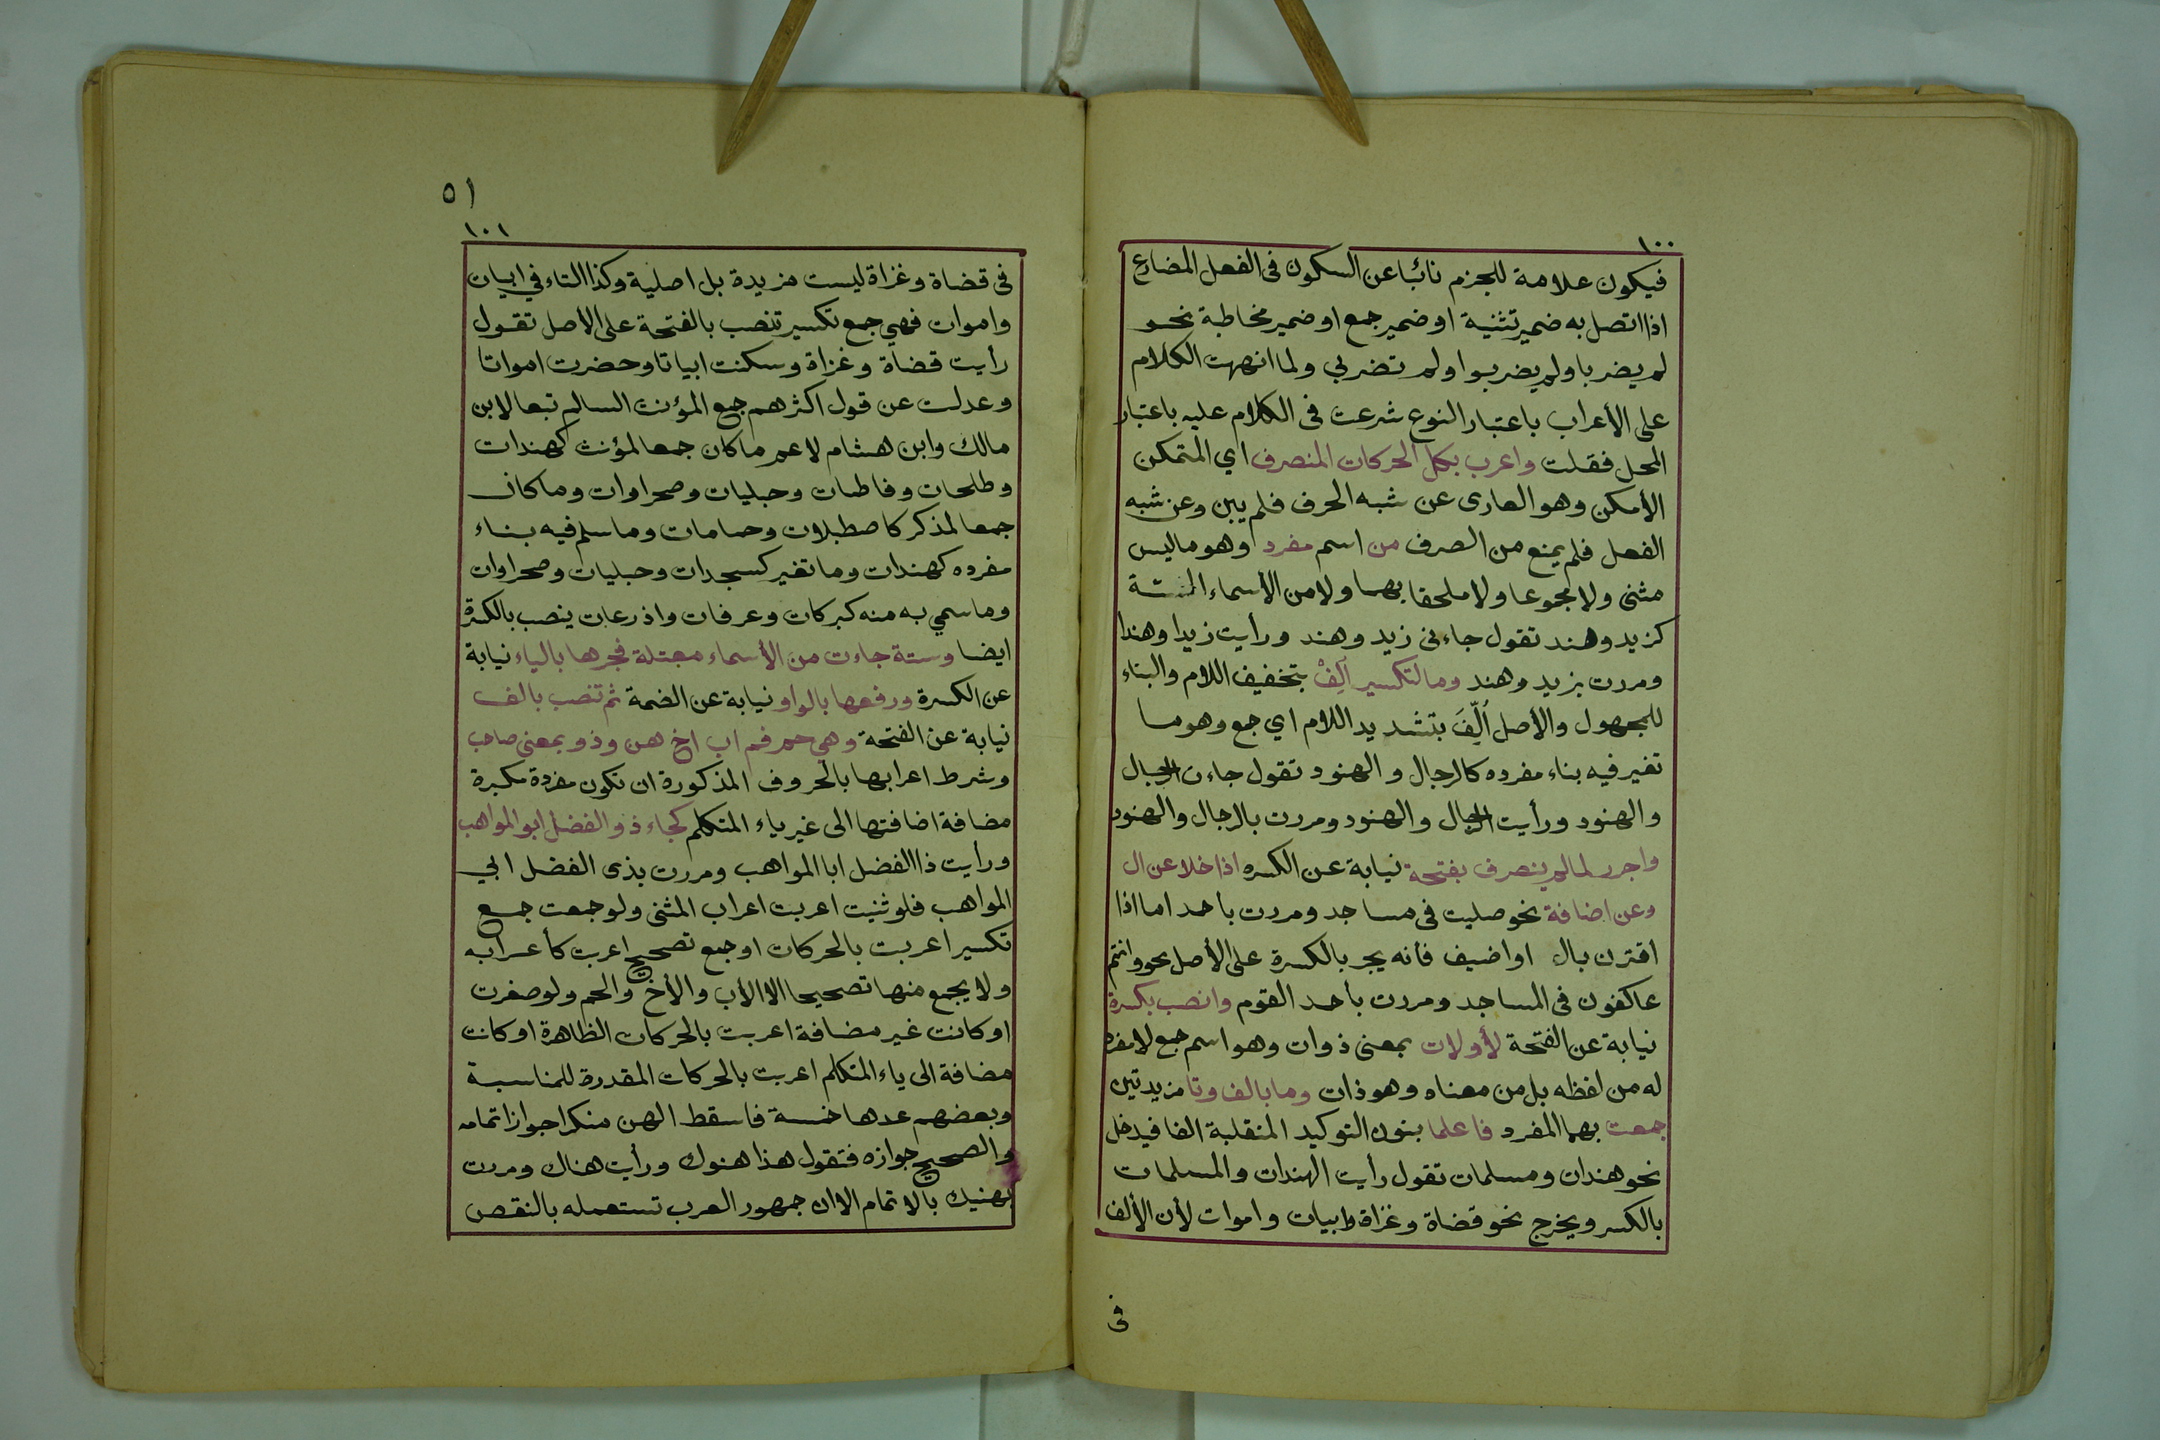 ١٠٠
فيكون علامة للجزم نائبا عن السكون فى الفعل المضارع
اذا اتصل به ضمير تثنية او ضمير جمع او ضمير مخاطبة نحو
لم يضربا ولم يضربوا ولم تضربي ولما انهيت الكلام
على الأعراب باعتبار النوع شرعت فى الكلام عليه باعتبار
المحل فقلت واعرب بكل الحركات المنصرف اي المتمكن
الأمكن وهو العارى عن شبه الحرف فلم يبن وعن شبه
الفعل فلم يمنع من الصرف من اسم مفرد وهو ماليس
مثنى ولا مجموعا ولا ملحقا بهما ولا من الأسماء الستة
كزيد وهند تقول جاءنى زيد وهند ورأيت زيدا وهندا
ومررت بزيد وهند وما لتكسير اُلِفْ بتخفيف اللام والبناء
للمجهول والأصل اُلِّفَ بتشديد اللام اي جمع وهو ما
تغير فيه بناء مفرده كالرجال والهنود تقول جاءت الرجال
والهنود ورأيت الرجال والهنود ومررت بالرجال والهنود
واجرر لما لم ينصرف بفتحة نيابة عن الكسره اذا خلا عن ال
وعن اضافة نحو صليت فى مساجد ومررت باحمد اما اذا
اقترن بال او اضيف فأنه يجر بالكسرة على الأصل نحو وانتم
عاكفون فى المساجد ومررت بأحمد القوم وانصب بكسرة
نيابة عن الفتحة لأولات بمعنى ذوات وهو اسم جمع لا مفرد
له من لفظه بل من معناه وهو ذات وما بالف وتا مزيدتين
جمعت بهما المفرد فاعلما بنون التوكيد المنقلبة الفا فيدخل
نحو هندات ومسلمات تقول رأيت الهندات والمسلمات
بالكسر ويخرج نحو قضاة وغزاة وابيات واموات لأن الألف
فى
٥١
١٠١
فى قضاة وغزاة ليست مزيدة بل اصلية وكذا التاء في ابيات
واموات فهي جمع تكسير تنصب بالفتحة على الأصل تقول
رأيت قضاة وغزاة وسكنت ابياتا وحضرت امواتا
وعدلت عن قول اكثرهم جمع المؤنث السالم تبعا لابن
مالك وابن هشام لاعم ما كان جمعا لمؤنث كهندات
وطلحات وفاطمات وحبليات وصحراوات وما كان
جمعا لمذكر كاصطبلات وحمامات وما سلم فيه بناء
مفرده كهندات وما تغير كسجدات وحبليات وصحراوات
وما سمي به منه كبركات وعرفات واذرعات ينصب بالكسرة
ايضا وستة جاءت من الأسماء معتلة فجرها بالياء نيابة
عن الكسرة ورفعها بالواو نيابة عن الضمة ثم تنصب بالف
نيابة عن الفتحة وهي حم فم اب اخ هن وذو بمعنى صاحب
وشرط اعرابها بالحروف المذكورة ان تكون مفردة مكبرة
مضافة اضافتها الى غير ياء المتكلم كجاء ذو الفضل ابو المواهب
ورأيت ذا الفضل ابا المواهب ومررت بذى الفضل ابي
المواهب فلو ثنيت اعربت اعراب المثنى ولو جمعت جمع
تكسير اعربت بالحركات او جمع تصحيح اعربت كأعرابه
ولا يجمع منها تصحيحا الا الأب والأخ والحم ولو صغرت
او كانت غير مضافة اعربت بالحركات الظاهرة او كانت
مضافة الى ياء المتكلم اعربت بالحركات المقدرة للمناسبة
وبعضهم عدها خمسة فاسقط الهن منكرا جواز اتمامه
والصحيح جوازه فتقول هذا هنوك ورأيت هناك ومررت
بهنيك بالاتمام الا ان جمهور العرب تستعمله بالنقص